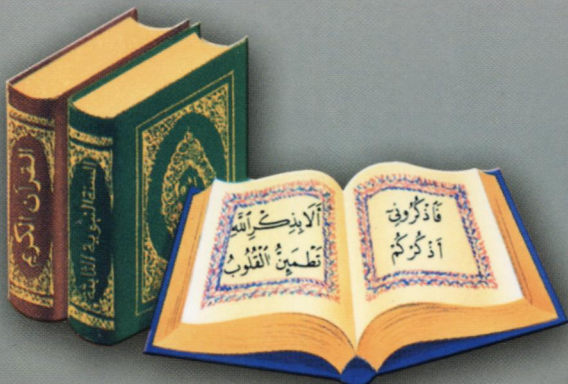 القرآن الكريم
السنة النبوية الثابتة
فَاذْكُرُونِي
أَذْكُرْكُمْ
أَلَا بِذِكْرِ اللَّهِ
تَطْمَئِنُّ الْقُلُوبُ